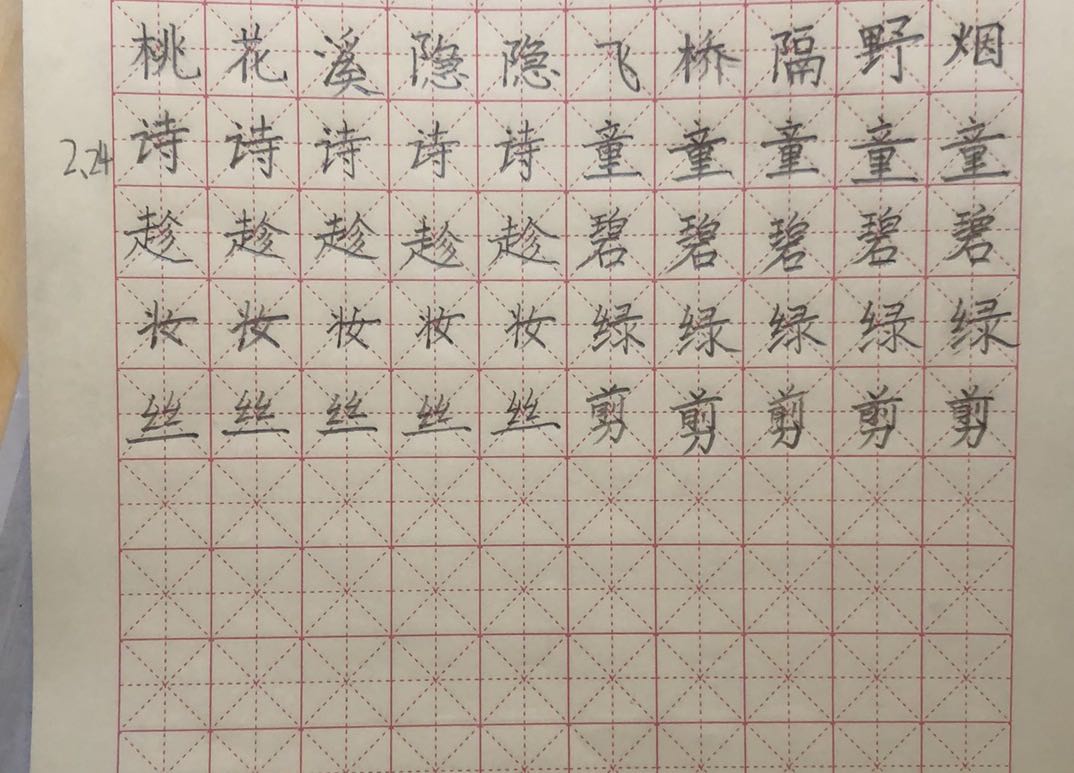 桃花溪隐隐飞桥隔野烟
2.24 诗诗诗诗诗童童童童童
趁趁趁趁趁碧碧碧碧碧
妆妆妆妆妆绿绿绿绿绿
丝丝丝丝丝剪剪剪剪剪